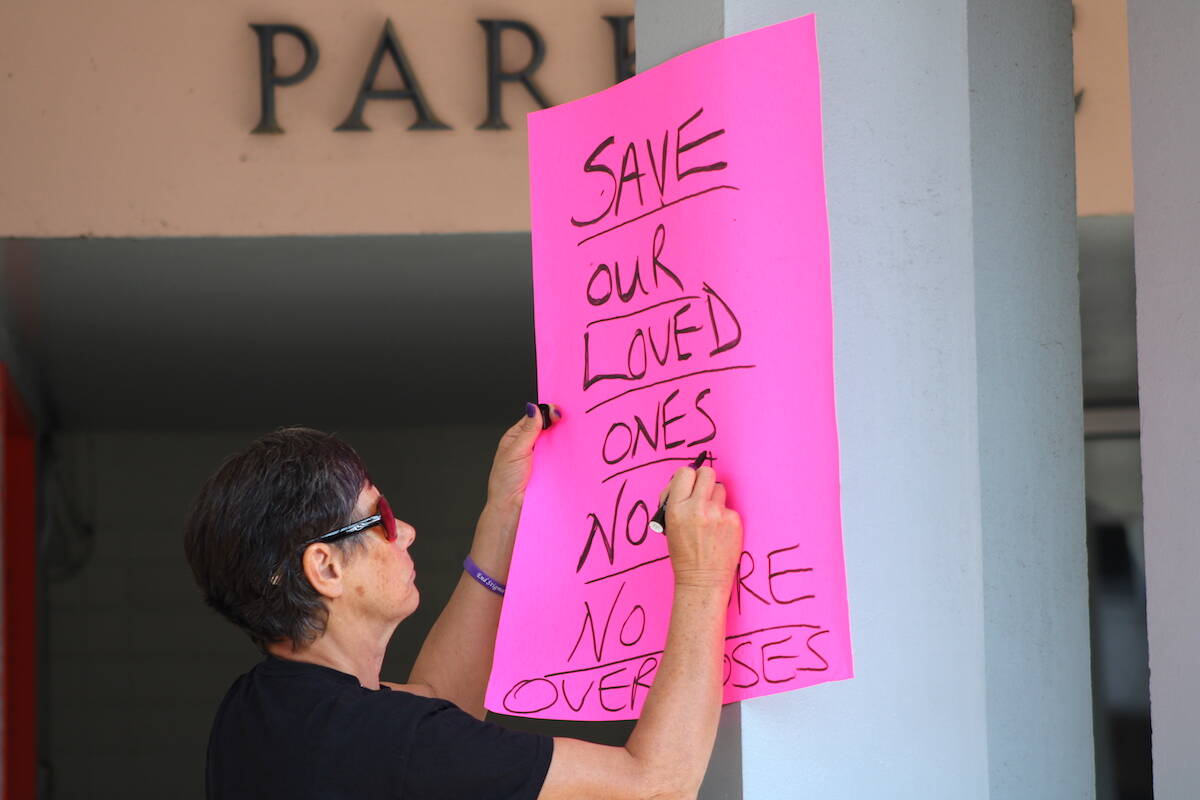 SAVE
OUR
LOVED
ONES
NO MORE
OVERDOSES
End Stigma